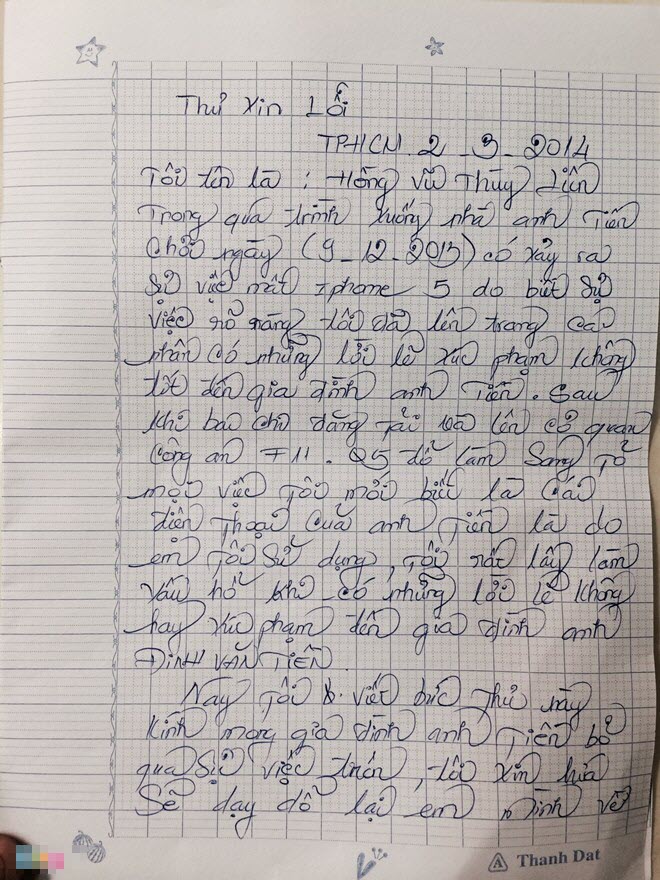 Thư Xin Lỗi
TPHCM. 2_3_2014
Tôi tên là : Hồng Vũ Thùy Liên
Trong quá trình xuống nhà anh Tiến
Chơi ngày (9_12_2013) có xảy ra
Sự việc mất Iphone 5 do biết Sự
việc rõ ràng tôi đã lên trang cá
nhân có những lời lẽ xúc phạm không
tốt đến gia đình anh Tiến. Sau
khi báo chí đăng tải và lên cơ quan
Công an F11. Q5 để làm Sáng Tỏ
mọi việc Tôi mới biết là cái
điện thoại của anh Tiến là do
em Tôi Sử dụng, Tôi rất lấy làm
xấu hổ khi có những lời lẽ không
hay xúc phạm đến gia đình anh
ĐINH VĂN TIẾN.
Nay Tôi viết bức Thư này
Kính mong gia đình anh Tiến bỏ
qua Sự việc trên, tôi xin hứa
Sẽ dạy dỗ lại em mình về
Thanh Dat